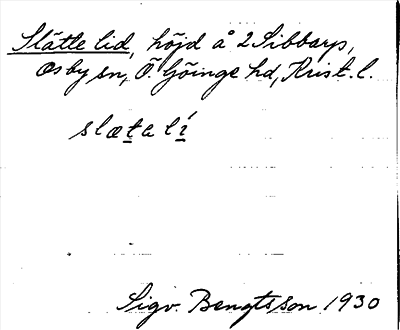 Slätte lid, höjd å 2 Sibbarp,
Osby sn, Ö. Göinge hd, Krist. l.
slætalí
Sigv. Bengtsson 1930